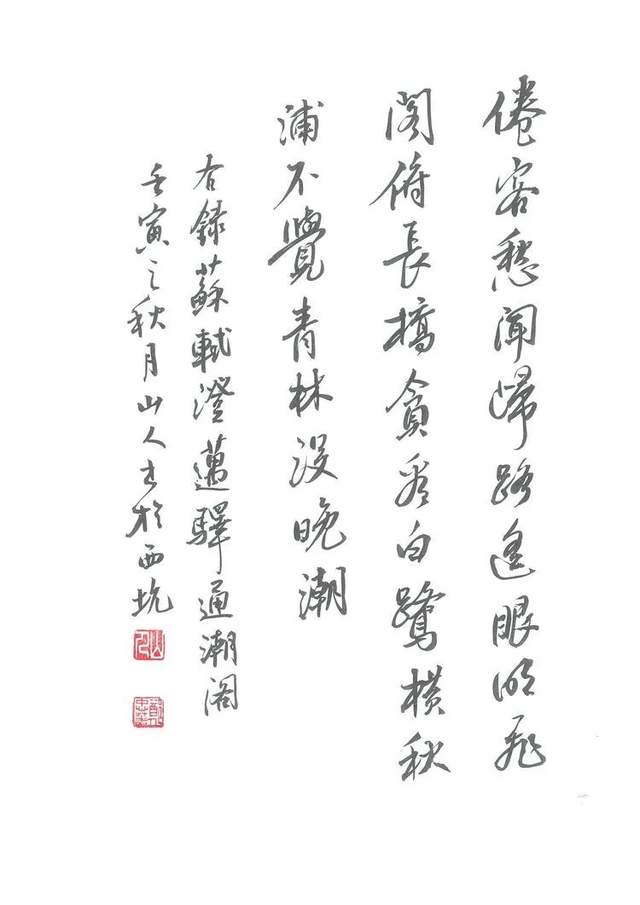 倦客愁聞歸路遙眼明飛
閣俯長橋貪看白鷺橫秋
浦不覺青林没晚潮
右錄蘇軾澄邁驛通潮閣
壬寅之秋月山人書於西坑